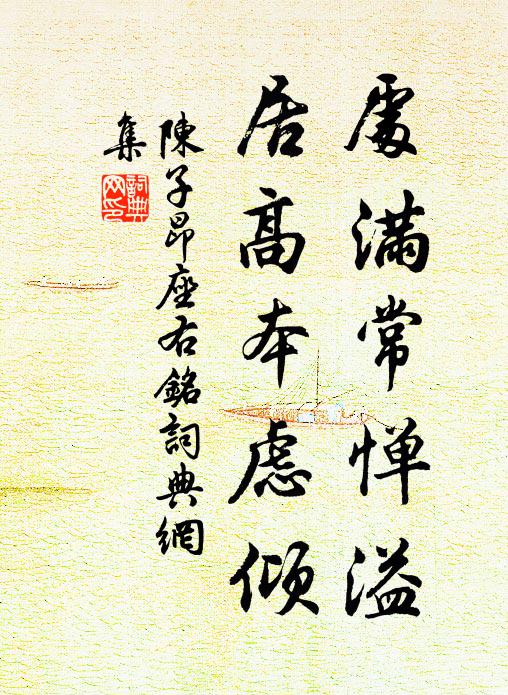 處滿常憚溢
居高本慮傾
陳子昂座右銘詞典網
集
詞典網印